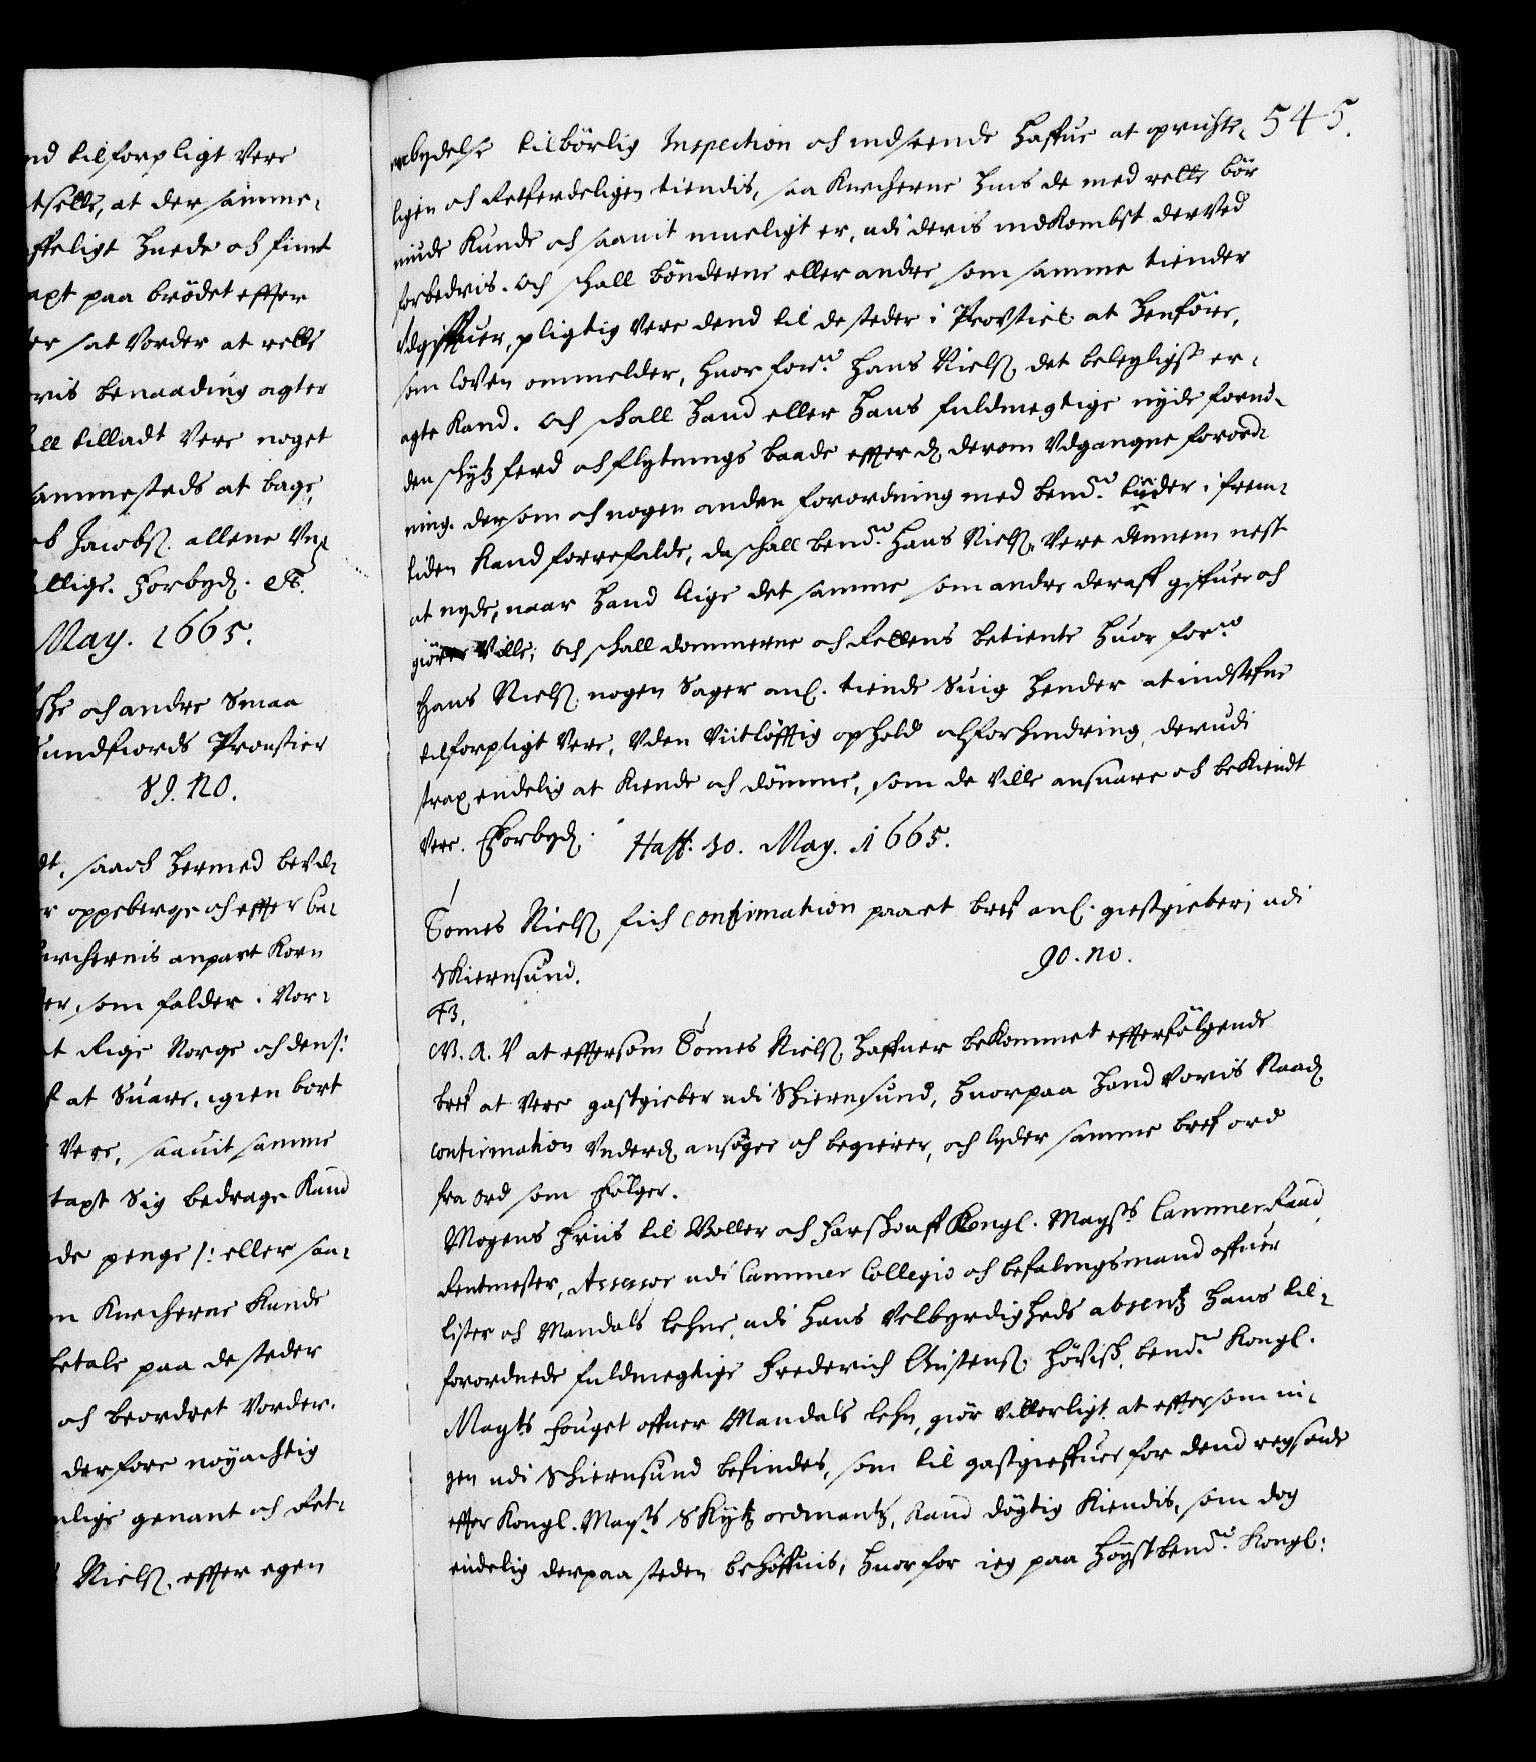 nd tilforpligt Vere
tsells, at der samme¬
ffeligt huede och fint
axt paa brödet effter
ter sat Vorder at rette
vris benaading agter
ll tilladt Vere noget
sammesteds at bage,
b Jacobs. allene Vn¬
llige. Forbyd. Et.
May. 1665.
och andre Smaa
Sundfiords Proustier
89. no.
dt, saa och hermed bevil¬
r oppeberge och effter be¬
Kirchernis anpart Korn
er, som falder i Vor¬
t Rige Norge och dens:
at Suare, igien bort
Vere, saauit samme
taxt Sig bedrage Kand
de penge /: eller saa¬
m Kircherne Kunde
betale paa de steder
och beordret Vorder.
derfore nöyachtig
nlige genant och Ret¬
Niels. effter egen
545.
erbydelse tilbörlig Inspection och indseende haffue at oprichte¬
ligen och Retferdeligen tiendis, saa Kircherne huis de med rette bör
niude Kunde och saauit mueligt er, udi deris indkombst derved
forbedris. Och schall bönderne eller andre som samme tiender
Vdgiffuer, pligtig Vere dend til de steder i Provstiet at henföre,
som loven ommelder, huor forne Hans Niels. det beleyligst er¬
agte Kand. Och schall hand eller hans fuldmegtige nyde fornö¬
den schytz ferd och flytnings baade effter dend derom Vdgangne forord¬
ning. dersom och nogen anden forordning med bende tiender i frem¬
tiden Kand forrefalde, da schall bende Hans Niels. Vere dennem nest
at nyde, naar hand lige det samme som andre deraff gifue och
giöre Ville; Och schall dommerne och Rettens betiente huor forne
Hans Niels. nogen Sager anl. tiende Suig hender at indstefne
tilforpligt Vere, Vden Viitlöfftig ophold och forhindring, derudi
strax endelig at Kiende och dömme, som de Ville ansuare och bekiendt
Vere. Forbyd. Haff: 30. May. 1665.
Tomes Niels. fich confirmation paa et bref anl. giestgieberi udi
Skiernsund. 90. no.
F3.
G. A. V at effersom Tomes Niels. haffuer bekommet effterfölgende
bref at Vere gastgieber udi Schiernsund, huorpaa hand Voris Naad.
confirmation Vnderd. ansöger och begierer, och lyder samme bref ord
fra ord som fölger.
Mogens Friis til Woller och Farschouff Kongl. Mayts CammerRaad
Rentmester, Assessor udi Cammer Collegio och befalingsmand offuer
lister och Mandals lehne, udi hans Velbyrdigheds absentz hans til¬
forordnede fuldmegtige Frederich Christens. Hövisch, bende Kongl.
Mayts Fouget offuer Mandals lehn, giör Vitterligt at effter som in¬
gen udi Schiernsund befindes, som til gastgieffuer for dend reysende
effter Kongl. Mayts Skytz ordinantz, Kand dögtig Kiendis, som dog
endelig derpaa steden behöffuis, huorfor ieg paa höystbende Kongl: